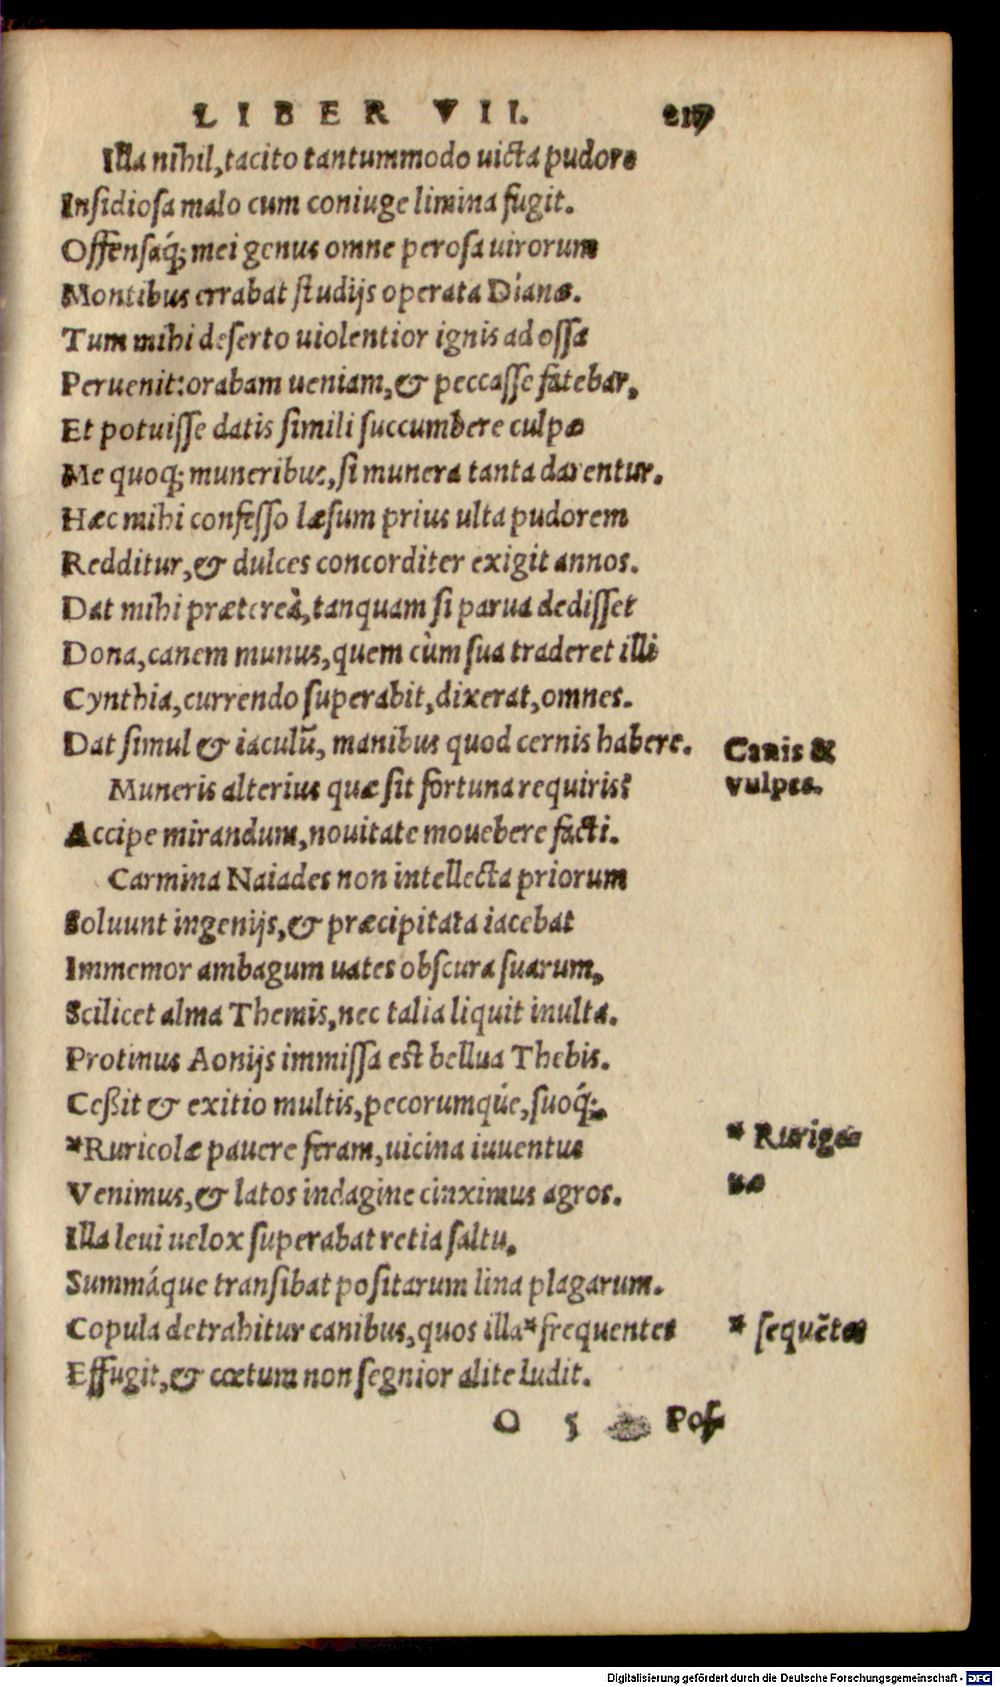 LIBER VII. 217
Illa nihil, tacito tantummodo uicta pudore
Insidiosa malo cum coniuge limina fugit.
Offensaq́; mei genus omne perosa uirorum
Montibus errabat studijs operata Dianæ.
Tum mihi deserto uiolentior ignis ad ossa
Peruenit: orabam ueniam, & peccasse fatebar,
Et potuisse datis simili succumbere culpæ
Me quoq; muneribus, si munera tanta darentur.
Hæc mihi confesso læsum prius ulta pudorem
Redditur, & dulces concorditer exigit annos.
Dat mihi prætereà, tanquam si parua dedisset
Dona, canem munus, quem cùm sua traderet illi
Cynthia, currendo superabit, dixerat, omnes.
Dat simul & iaculũ, manibus quod cernis habere.
Canis &
vulpes.
Muneris alterius quæ sit fortuna requiris?
Accipe mirandum, nouitate mouebere facti.
Carmina Naiades non intellecta priorum
Soluunt ingenijs, & præcipitata iacebat
Immemor ambagum uates obscura suarum,
Scilicet alma Themis, nec talia liquit inulta.
Protinus Aonijs immissa est bellua Thebis.
Ceßit & exitio multis, pecorumqúe, suoq́;
*Ruricolæ pauere feram, uicina iuuentus
* Rurigæ
næ
Venimus, & latos indagine cinximus agros.
Illa leui uelox superabat retia saltu,
Summáque transibat positarum lina plagarum.
Copula detrahitur canibus, quos illa *frequentes
* sequẽtes
Effugit, & cœtum non segnior alite ludit.
O 5 Pos
Digitalisierung gefördert durch die Deutsche Forschungsgemeinschaft - DFG